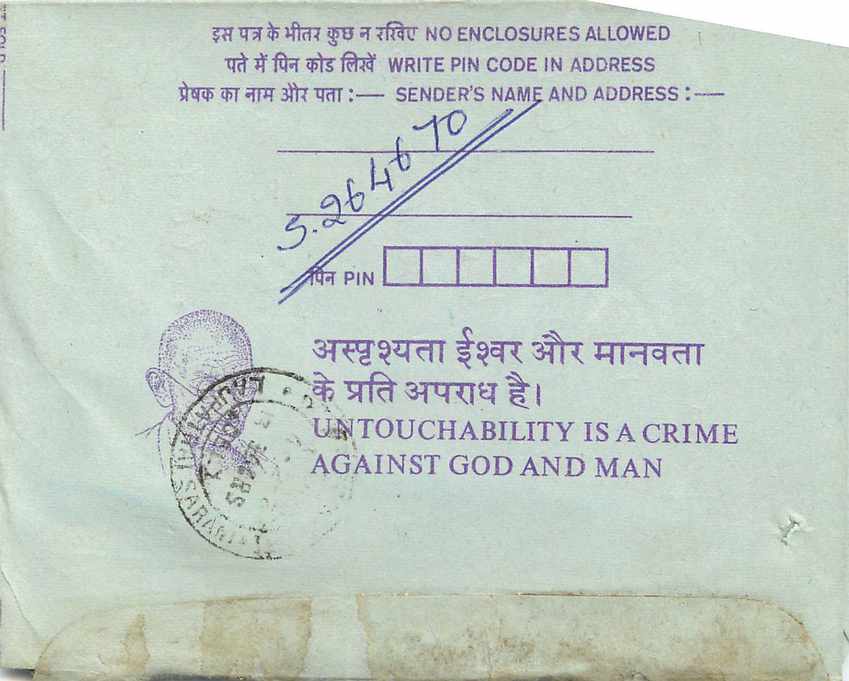 इस पत्र के भीतर कुछ न रखिए NO ENCLOSURES ALLOWED
पते में पिन कोड लिखें WRITE PIN CODE IN ADDRESS
प्रेषक का नाम और पता :— SENDER'S NAME AND ADDRESS :—
5.264670
पिन PIN
अस्पृश्यता ईश्वर और मानवता
के प्रति अपराध है।
UNTOUCHABILITY IS A CRIME
AGAINST GOD AND MAN